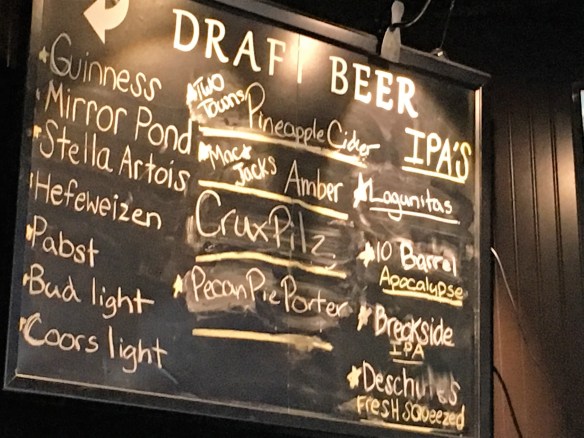 DRAFT BEER
Guinness
Mirror Pond
Stella Artois
Hefeweizen
Pabst
Bud light
Coors light
Two
Towns
Pineapple Cider
Mac &
Jacks Amber
Crux Pilz
Pecan Pie Porter
IPA'S
Lagunitas
10 Barrel
Apocalypse
Breakside
IPA
Deschutes
Fresh Squeezed